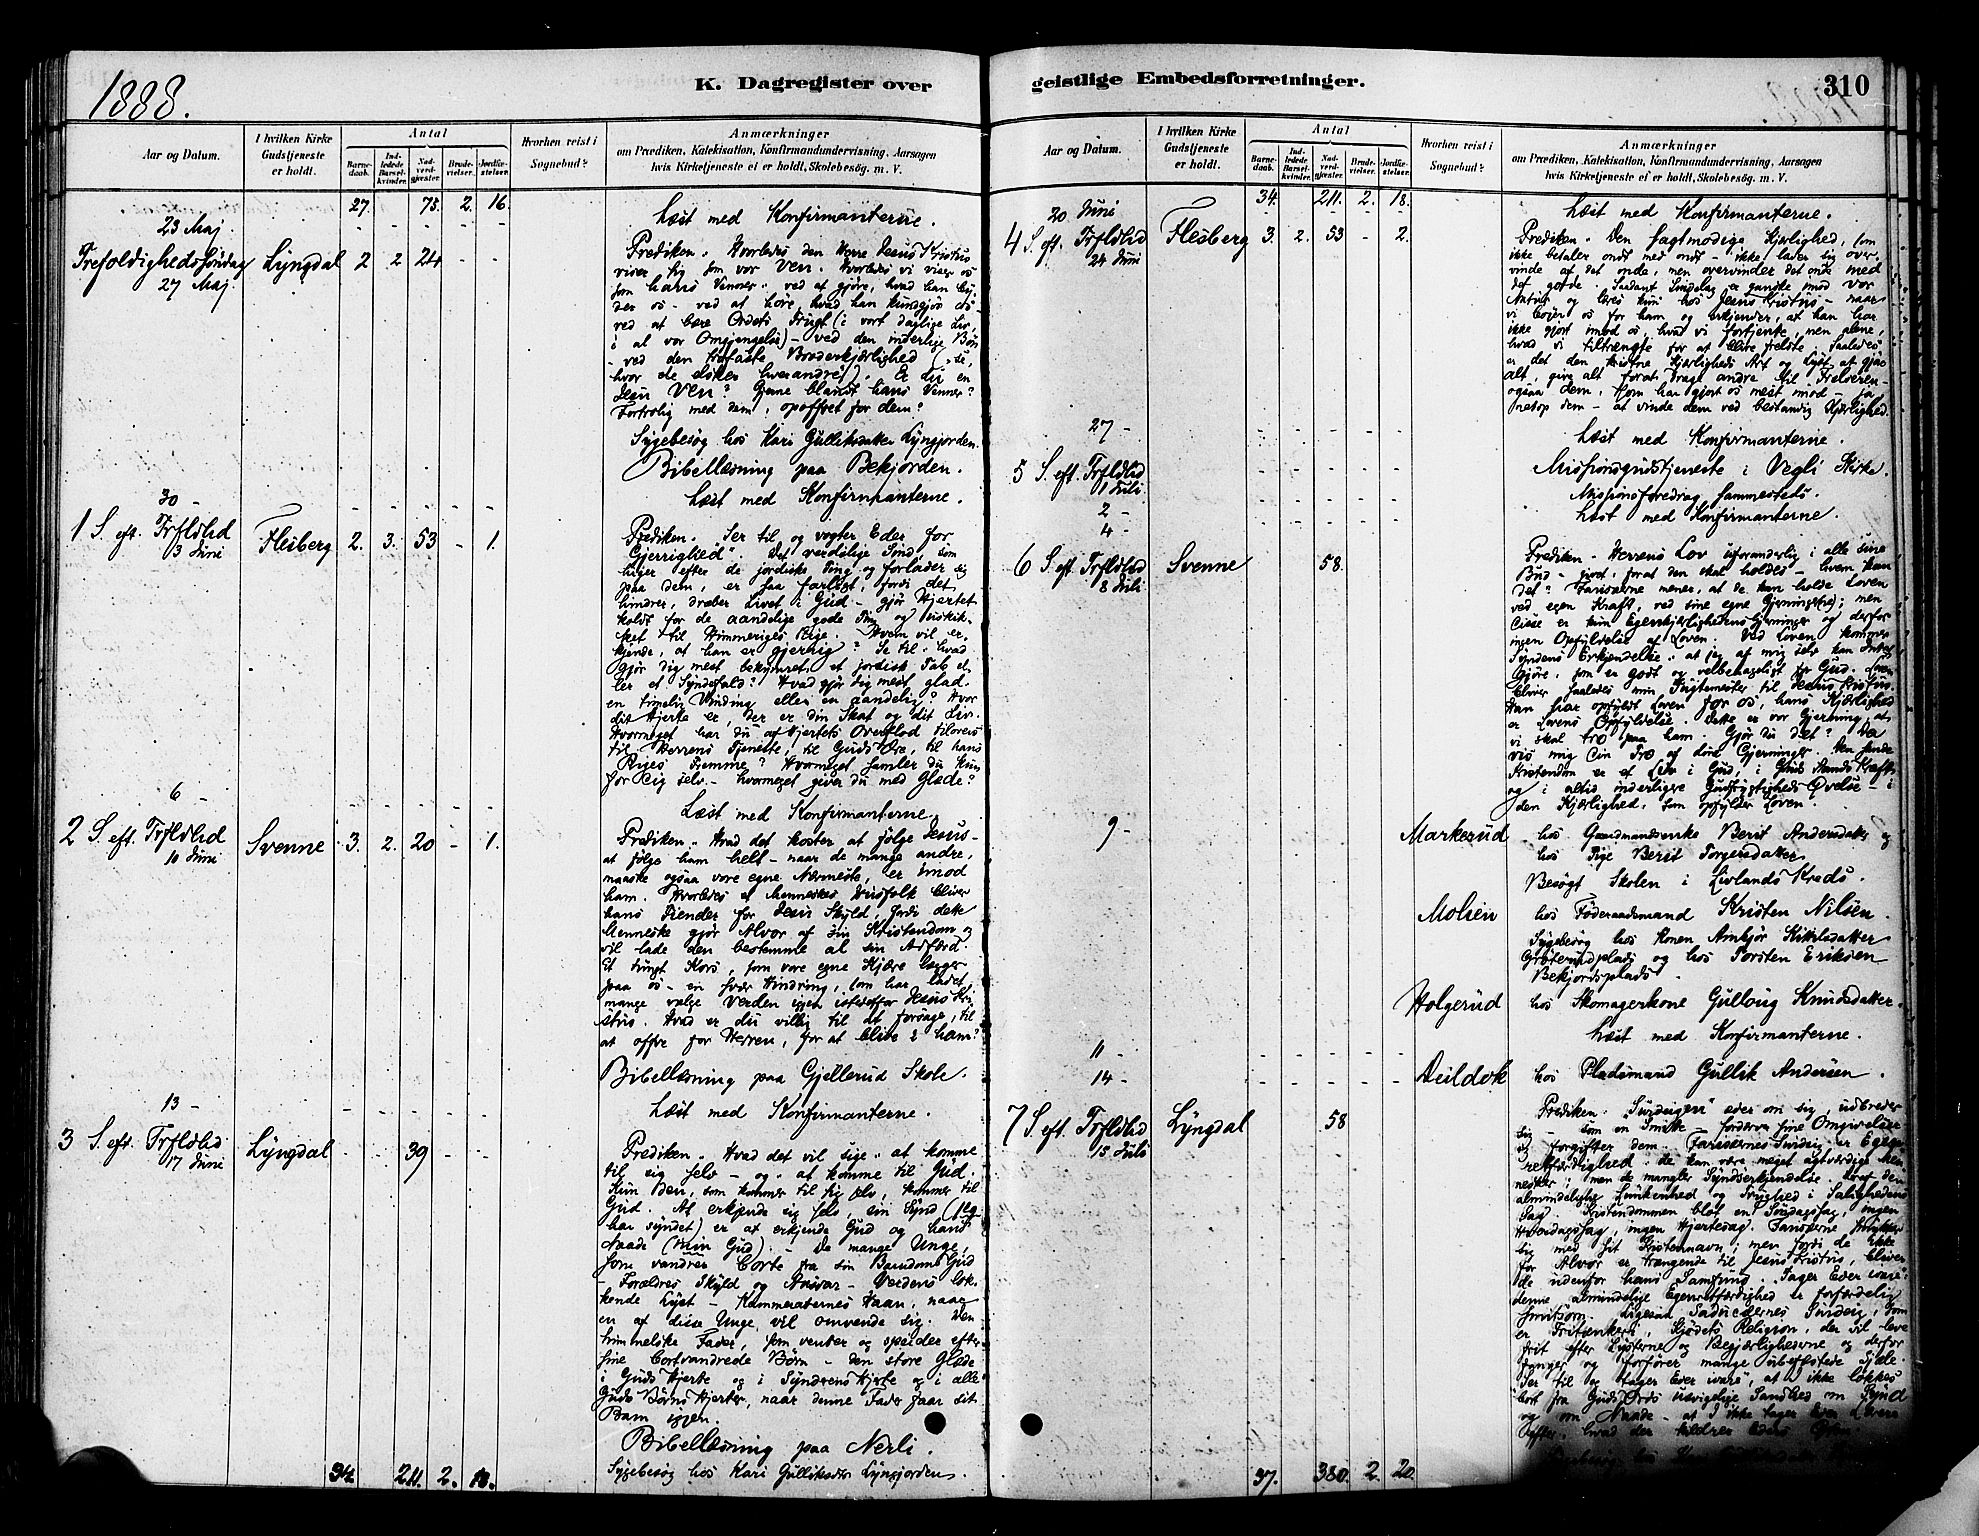 1888.
K. Dagregister over
Aar og Datum.
I hvilken Kirke Gudstjeneste er holdt.
Antal
Barnedaab.
Indledede Barselkvinder.
Nadverdgjester.
Brudevielser.
Jordfæstelser.
Hvorhen reist i Sognebud?
Anmærkninger
om Prædiken, Katekisation, Konfirmandundervisning, Aarsagen
hvis Kirketjeneste ei er holdt, Skolebesøg. m. V.
27. 73. 2. 16.
23 Maj - - - - - Læst med Konfirmanterne.
Trefoldighedssøndag Lyngdal 2 2 24 - - Prediken. Hvorledes den Herre Jesus Kristus
27 Maj.
viser sig som vor Ven. Hvorledes vi viser os
som hans Venner. ved at gjøre, hvad han byder
os - ved at høre, hvad han kundgjør os -
ved at bære Ordets Frugt (i vort daglige Liv,
i al vor Omgjængelse) - ved den inderlige Bøn
- ved den trofaste Broderkjærlighed (se,
hvor de elsker hverandre!). Er du en
Jesu Ven? Gjerne blandt hans Venner?
Fortrolig med dem, opoffret for dem?
Sygebesøg hos Kari Gulliksdatter Lyngjorden.
Bibellæsning paa Bekjorden.
30 - - - - - - Læst med Konfirmanterne.
1 S. eft. Trfldhd Flesberg 2. 3. 53 - 1. Prediken. Ser til og vogter Eder for
3 Juni
Gjerrighed". Det verdslige Sind, som
higer efter de jordiske Ting og forlader sig
paa dem, er saa farligt, fordi det
hindrer, dræber Livet i Gud - gjør Hjertet
koldt for de aandelige gode Ting og uskikket
til Himmeriges Rige. Hvem vil erkjende,
at han er gjerrig? Se til, hvad
gjør dig mest bekymret, et jordisk Tab eller
et Syndefald? Hvad gjør dig mest glad.
en timelig Vinding eller en aandelig? Hvor
dit Hjerte er, der er din Skat og dit Liv.
Hvormeget har du af Hjertets Overflod tilovers
til Herrens Tjeneste, til Guds Ære, til hans
Riges Fremme? Hvormeget samler du kun
for Dig selv - hvormeget giver du med Glæde?
6 - - - - - - Læst med Konfirmanterne.
2 S. eft. Trfldhd Svenne 3. 2. 20 - 1. Prediken. Hvad det koster at følge Jesus -
10 Juni
at følge ham helt - naar de mange andre,
maaske ogsaa vore egne Nærmeste, er imod
ham. Hvorledes et Menneskes Husfolk bliver
hans Fiender for Jesu Skyld, fordi dette
Menneske gjør Alvor af sin Kristendom og
vil lade den bestemme al sin Adfærd.
Et tungt Kors, som vore egne Kjære lægger
paa os - en svær Hindring, som har ladet
mange vælge Verden igjen istedetfor Jesus Kristus.
Hvad er du villig til at forsage, til
at offre for Herren, for at blive i ham?
Bibellæsning paa Gjellerud Skole.
13 - - - - - - Læst med Konfirmanterne.
3 S. eft. Trfldhd Lyngdal - - 39 Prediken. Hvad det vil sige "at komme
17 Juni
til sig selv - og "at komme til Gud.
Kun den, som kommer til sig selv, kommer til
Gud. At erkjende sig selv, sin Synd (jeg
har syndet) er at erkjende Gud og hans
Naade (min Gud). - De mange Unge,
som vandrer borte fra sin Barndoms Gud
- Forældres Skyld og Ansvar - Verdens lokkende
Lyst - Kammeraternes Haan, naar
en af disse Unge vil omvende sig. Den
himmelske Fader, som venter og speider efter
sine bortvandrede Børn - den store Glæde
i Guds Hjerte og i Synderens Hjerte og i alle
Guds Børns Hjerter, naar denne Fader faar sit
Barn igjen.
Bibellæsning paa Nerli.
Sygebesøg hos Kari Gulliksdtr Lyngjorden.
34. 211. 2. 18.
geistlige Embedsforretninger.
310
Aar og Datum.
I hvilken Kirke Gudstjeneste er holdt.
Antal
Barnedaab.
Indledede Barselkvinder.
Nadverdgjester.
Brudevielser.
Jordfæstelser.
Hvorhen reist i Sognebud?
Anmærkninger
om Prædiken, Katekisation, Konfirmandundervisning, Aarsagen
hvis Kirketjeneste ei er holdt, Skolebesøg. m. V.
34. 211. 2. 18.
20 Juni - - - - - Læst med Konfirmanterne.
4 S. eft. Trfldhd Flesberg 3. 2. 53 - 2. Prediken. Den sagtmodige Kjærlighed, som
24 Juni
ikke betaler ondt med ondt - ikke lader sig overvinde
af det onde, men overvinder det onde med
det gode. Saadant Sindelag er ganske imod vor
Natur og læres kun hos Jesus Kristus - naar
vi bøier os for ham og erkjender, at han har
ikke gjort imod os, hvad vi fortjente, men alene,
hvad vi tiltrængte for at blive frelste. Saaledes
er det den kristne Kjærligheds Art og Lyst at gjøre
alt, give alt forat drage andre til Frelseren
ogsaa dem, som har gjort os mest imod - ja
netop dem - at vinde dem ved bestandig Kjærlighed.
27 - - - - - - Læst med Konfirmanterne.
5 S. eft. Trfldhd - - - - - Missionsgudstjeneste i Vegli Kirke.
1 Juli
2 - Missionsforedrag sammesteds.
4 - - - - - - Læst med Konfirmanterne.
6 S. eft. Trfldhd Svenne 58. Prediken. Herrens Lov uforanderlig i alle sine
8 Juli
Bud - givet, forat den skal holdes - hvem kan
det? Farisæerne mener, at de kan holde Loven
ved egen Kraft, ved sine egne Gjerninger; men
disse er kun Egenkjærlighedens Gjerninger og derfor
ingen Opfyldelse af Loven. Ved Loven kommer
Syndens Erkjendelse. at jeg af mig selv kan Intet
gjøre, som er godt og velbehageligt for Gud. Loven
bliver saaledes min Tugtemester til Jesus Kristus.
Han har opfyldt Loven for os, hans Kjærlighed
er Lovens Opfyldelse. Dette er vor Gjerning, at
vi skal tro paa ham. Gjør du det? Da
vis mig din Tro af dine Gjerninger. Den sande
Kristendom er et Liv i Gud, i Guds Aands Kraft
og i altid inderligere Gudfrygtigheds Øvelse - i
den Kjærlighed, som opfylder Loven.
9 - Markerud hos Gaardmandsenke Berit Andersdatter og
hos Pige Berit Torgersdatter
Besøgt Skolen i Livlands Kreds.
Molsen hos Føderaadsmand Kristen Nilsen.
Sygebesøg hos Konen Arnbjør Kittilsdatter
Gråterudplads og hos Torsten Eriksen
Bekjordsplads.
Holgerud hos Skomagerkone Gullaug Knudsdatter.
11 - - - - - - Læst med Konfirmanterne.
14 - - - - - - Deildok hos Pladsmand Gullik Andersen.
7 S. eft. Trfldhd Lyngdal 58 Prediken. "Surdeigen" æder om sig, udbreder
15 Juli
sig - som en Smitte - fordærver sine Omgivelser
og forgifter dem. Farisæernes Surdeig er Egenretfærdighed.
de kan være meget agtværdige Mennesker;
men de mangler Syndserkjendelse. Deraf den
almindelige Lunkenhed og Tryghed i Salighedens
Sag. Kristendommen blot en Søndagssag, ingen
Hverdagssag, ingen Hjertesag. Farisæerne smykker
sig med sit Kristennavn; men fordi de ikke
for Alvor er trængende til Jesus Kristus, bliver
de udenfor hans Samfund. "Tager Eder ivare":
denne almindelige Egenretfærdighed er forfærdelig
smitsom. Ligesaa Sadducæernes Surdeig, som
er Fritænkeri, Kjødets Religion, der vil leve
frit efter Lysterne og Begjærlighederne og derfor
fanger og forfører mange ubefæstede Sjæle.
Ser til og "tager Eder ivare", at I ikke lokkes
bort fra Guds Ords usvigelige Sandhed om Synd
og om Naade - at I ikke tager dem Lærere
efter, hvad der kildrer Eders Øren.
37. 380. 2. 20.